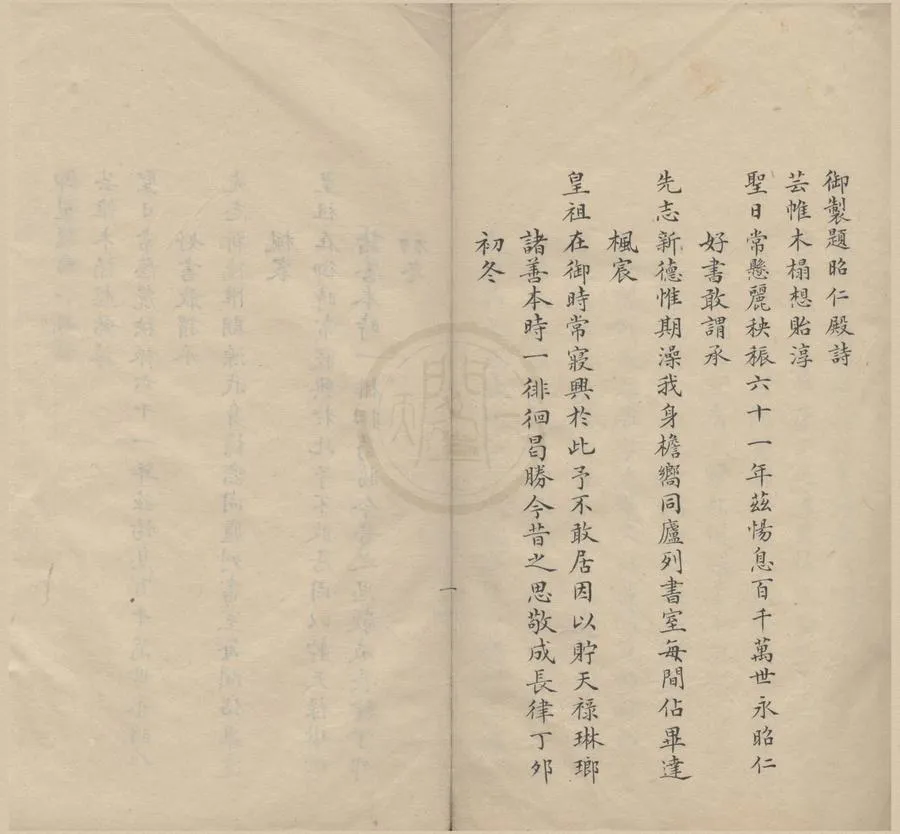 御製題昭仁殿詩
芸帷木榻想貽淳
聖日常懸麗秧裖六十一年茲惕息百千萬世永昭仁
好書敢謂承
先志新德惟期澡我身檐嚮同廬列書室每間佔畢達
楓宸
皇祖在御時常寢興於此予不敢居因以貯天祿琳瑯
諸善本時一徘徊曷勝今昔之思敬成長律丁夘
初冬
一